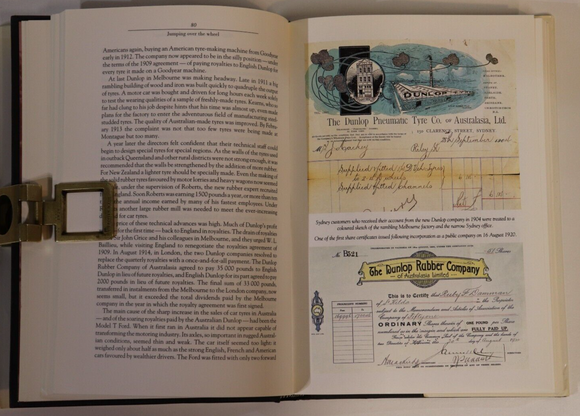 80
Jumping over the wheel
Americans again, buying an American tyre-making machine from Goodyear
early in 1912. The company now appeared to be in the silly position—under
the terms of the 1909 agreement—of paying royalties to English Dunlop for
every tyre it made on a Goodyear machine.
At last Dunlop in Melbourne was making headway. Late in 1911 a
rambling building of wood and iron was built quickly to quadruple the output
of tyres. A motor car was bought and driven for long hours each week solely
to test the wearing qualities of a sample of freshly-made tyres. Kearns, who so
far had clung to his job despite hints that his time was almost up, even made
plans for the factory to enter the adventurous field of manufacturing steel-
studded tyres. The quality of Australian-made tyres was improved. By Febru-
ary 1913 the complaint was not that too few tyres were being made at
Montague but too many.
A year later the directors felt confident that their technical staff could
begin to design special tyres for special regions. As the walls of the tyres used
in outback Queensland and other rural districts were not strong enough, it was
recommended that the walls be strengthened by the addition of more rubber.
For New Zealand a lighter tyre should be specially made. Even the making of
solid rubber tyres favoured by motor lorries and heavy wagons now seemed
under the supervision of Roberts, the new rubber expert recruited
England. Soon Roberts was earning 1500 pounds a year, or more than ten
the annual income earned by many of his fastest employees. Under
another large rubber mill was needed to meet the ever-increasing
for car tyres.
price of these technical advances was high. Much of Dunlop's profit
for the first time—back to England in royalties. The drain of royalties
John Grice and his colleagues in Melbourne, and they urged W. L.
Baillieu, while visiting England to renegotiate the royalties agreement of
1909. In August 1914, in London, the two Dunlop companies resolved to
replace the quarterly royalties with a once-and-for-all payment. The Dunlop
Rubber Company of Australasia agreed to pay 35 000 pounds to English
Dunlop in lieu of future royalties, and English Dunlop for its part agreed to pay
2000 pounds in lieu of future royalties. The final sum of 33 000 pounds,
transferred in instalments from the Melbourne to the London company, now
seems small, but it exceeded the total dividends paid by the Melbourne
company in the year in which the royalty agreement was first signed.
The main cause of the sharp increase in the sales of car tyres in Australia
—and of the soaring royalties paid by the Australian Dunlop—had been the
Model T Ford. When it first ran in Australia it did not appear capable of
transforming the motoring industry. Its axles, so important in rugged Austral-
ian conditions, seemed thin and weak. The car itself seemed too light: it
weighed only about half as much as the strong English, French and American
cars favoured by wealthier drivers. The Ford was fitted with only two forward
DUNLOP
The Dunlop Pneumatic Tyre Co. of Australasia, Ltd.
CLARENCE STREET, SYDNEY
September 1904
Riley St
Supplied & fitted
Supplied & fitted Channels
Sydney customers who received their account from the new Dunlop company in 1904 were treated to a
coloured sketch of the rambling Melbourne factory and the narrow Sydney office.
One of the first share certificates issued following incorporation as a public company on 16 August 1920.
No B121
The Dunlop Rubber Company
of Australasia Limited
This is to Certify that
is the Proprietor
subject to the Memorandum and Articles of Association of the
ORDINARY
FULLY PAID UP.